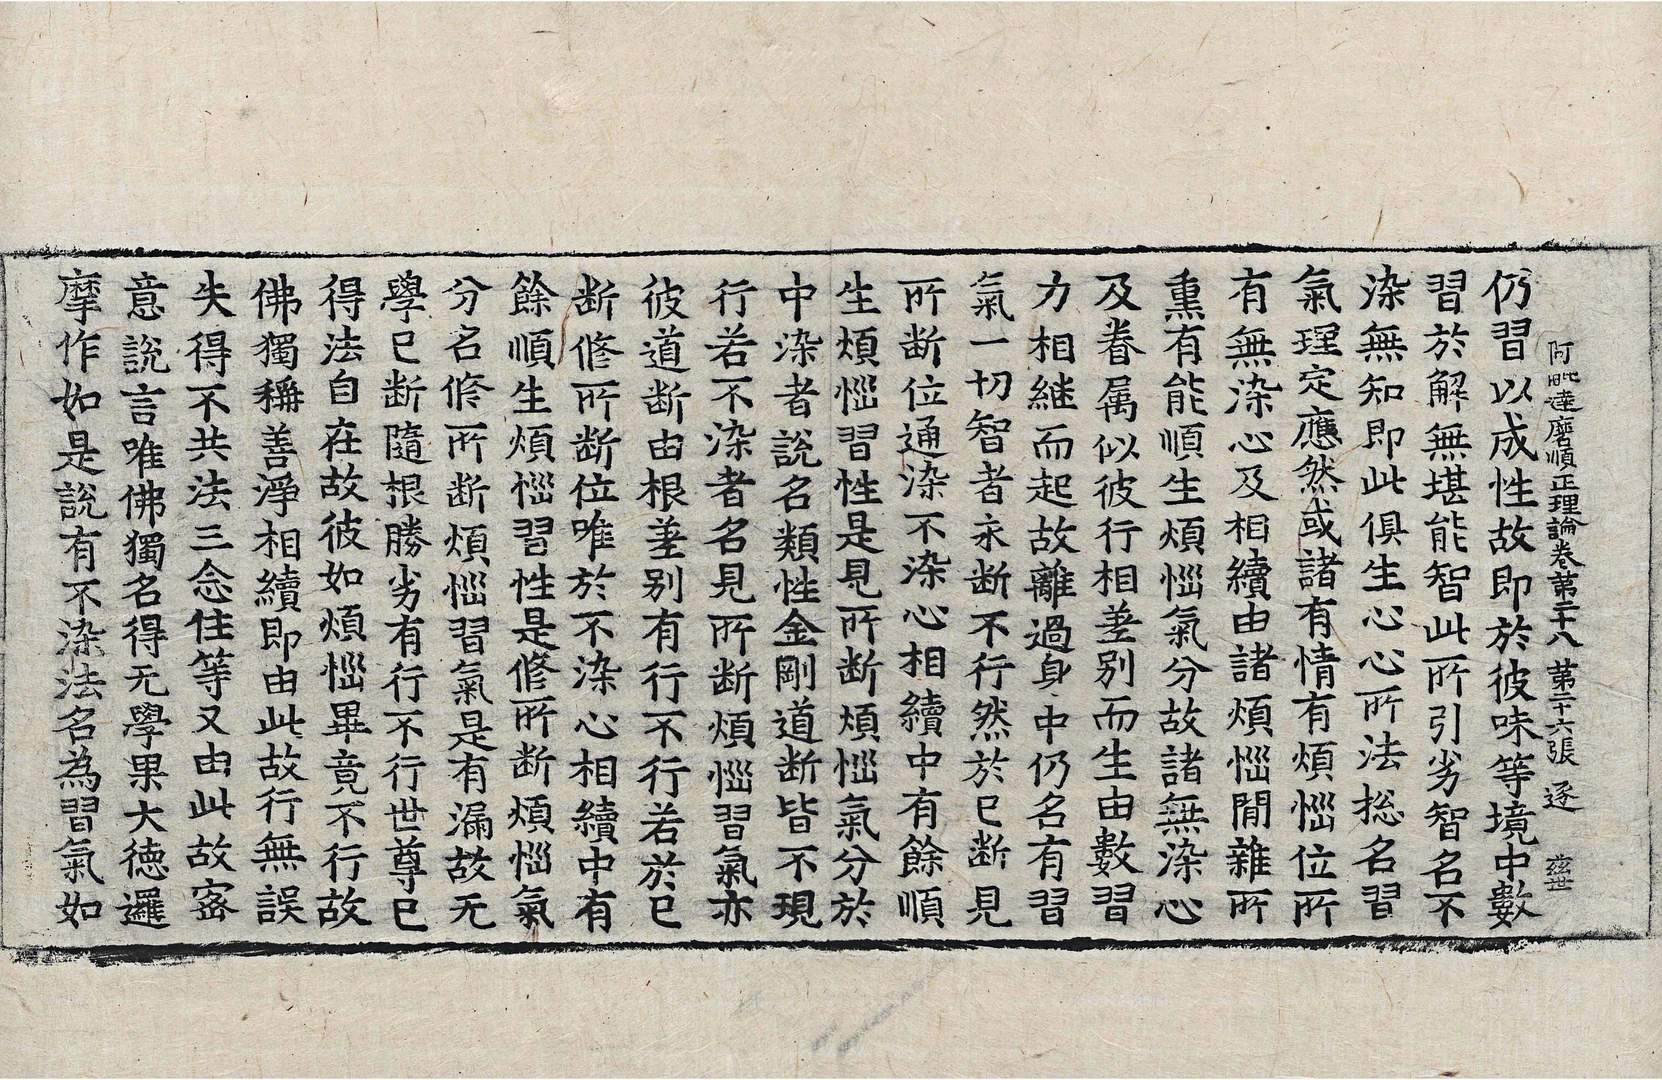 阿毗達磨順正理論卷第二十八 第二十六張 逐 茲世
仍習以成性故即於彼味等境中數
習於解無堪能智此所引劣智名不
染無知即此俱生心心所法捴名習
氣理定應然或諸有情有煩惱位所
有無染心及相續由諸煩惱閒雜所
熏有能順生煩惱氣分故諸無染心
及眷属似彼行相差别而生由數習
力相継而起故離過身中仍名有習
氣一切智者永断不行然於已断見
所断位通染不染心相續中有餘順
生煩惱習性是見所断煩惱氣分於
中染者說名類性金剛道断皆不現
行若不染者名見所断煩惱習氣亦
彼道断由根差别有行不行若於已
断修所断位唯於不染心相續中有
餘順生煩惱習性是修所断煩惱氣
分名修所断煩惱習氣是有漏故无
學已断隨根勝劣有行不行世尊已
得法自在故彼如煩惱畢竟不行故
佛獨稱善淨相續即由此故行無誤
失得不共法三念住等又由此故密
意說言唯佛獨名得无學果大德邏
摩作如是說有不染法名為習氣如